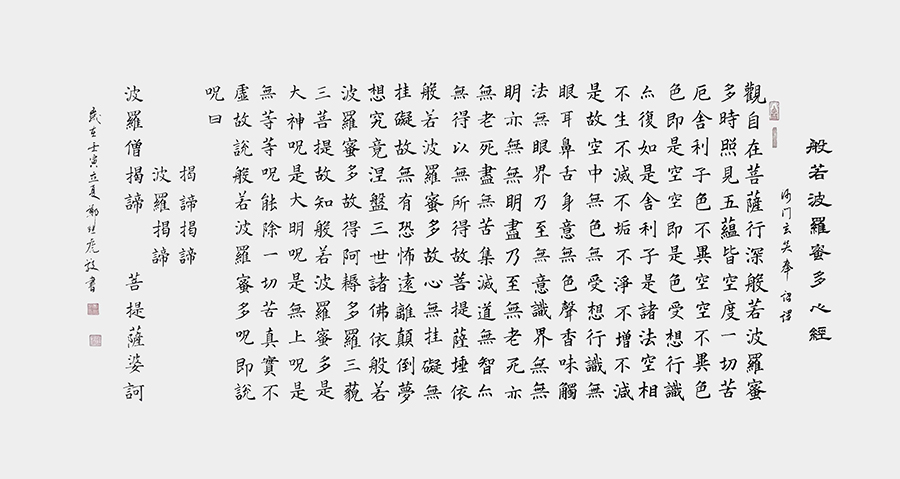 般若波羅蜜多心經
沙门玄奘奉诏譯
觀自在菩薩行深般若波羅蜜
多時照見五蘊皆空度一切苦
厄舍利子色不異空空不異色
色即是空空即是色受想行識
亦復如是舍利子是諸法空相
不生不滅不垢不淨不增不減
是故空中無色無受想行識無
眼耳鼻舌身意無色聲香味觸
法無眼界乃至無意識界無無
明亦無無明盡乃至無老死亦
無老死盡無苦集滅道無智亦
無得以無所得故菩提薩埵依
般若波羅蜜多故心無挂礙無
挂礙故無有恐怖遠離顛倒夢
想究竟涅盤三世諸佛依般若
波羅蜜多故得阿耨多羅三藐
三菩提故知般若波羅蜜多是
大神呪是大明呪是無上呪是
無等等呪能除一切苦真實不
虛故說般若波羅蜜多呪即說
呪曰
揭諦揭諦
波羅揭諦
波羅僧揭諦 菩提薩婆訶
歲在壬寅立夏敬書